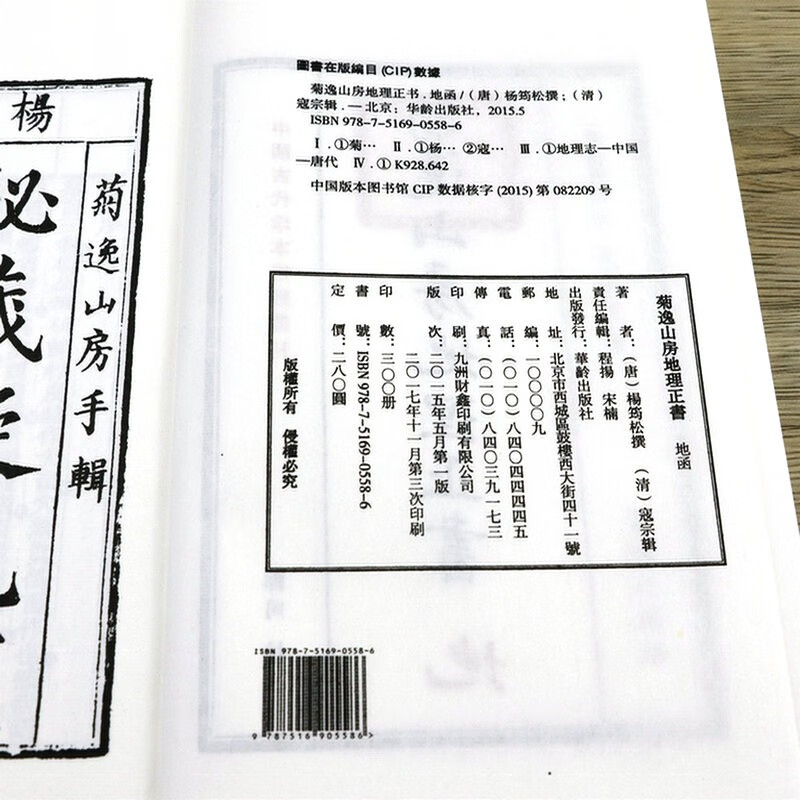 圖書在版編目(CIP)數據
菊逸山房地理正书.地函/(唐)杨筠松撰;(清)
寇宗辑.—北京:华龄出版社,2015.5
ISBN 978-7-5169-0558-6
Ⅰ.①菊… Ⅱ.①杨… ②寇… Ⅲ.①地理志—中国
—唐代 Ⅳ.①K928.642
中国版本图书馆 CIP 数据核字(2015)第 082209 号
菊逸山房地理正書 地函
著者:(唐)楊筠松撰 (清)寇宗辑
責任編輯:程揚 宋楠
出版發行:華齡出版社
地址:北京市西城區鼓樓西大街四十一號
郵編:一〇〇〇〇九
電話:(〇一〇)八四〇四四四四五
傳真:(〇一〇)八四〇三九一七三
印刷:九洲財鑫印刷有限公司
版次:二〇一五年五月第一版
二〇一七年十一月第三次印刷
印數:三〇〇册
書號:ISBN 978-7-5169-0558-6
定價:二八〇圓
版權所有 侵權必究
ISBN 978-7-5169-0558-6
9 787516 905586>
菊逸山房手輯
楊